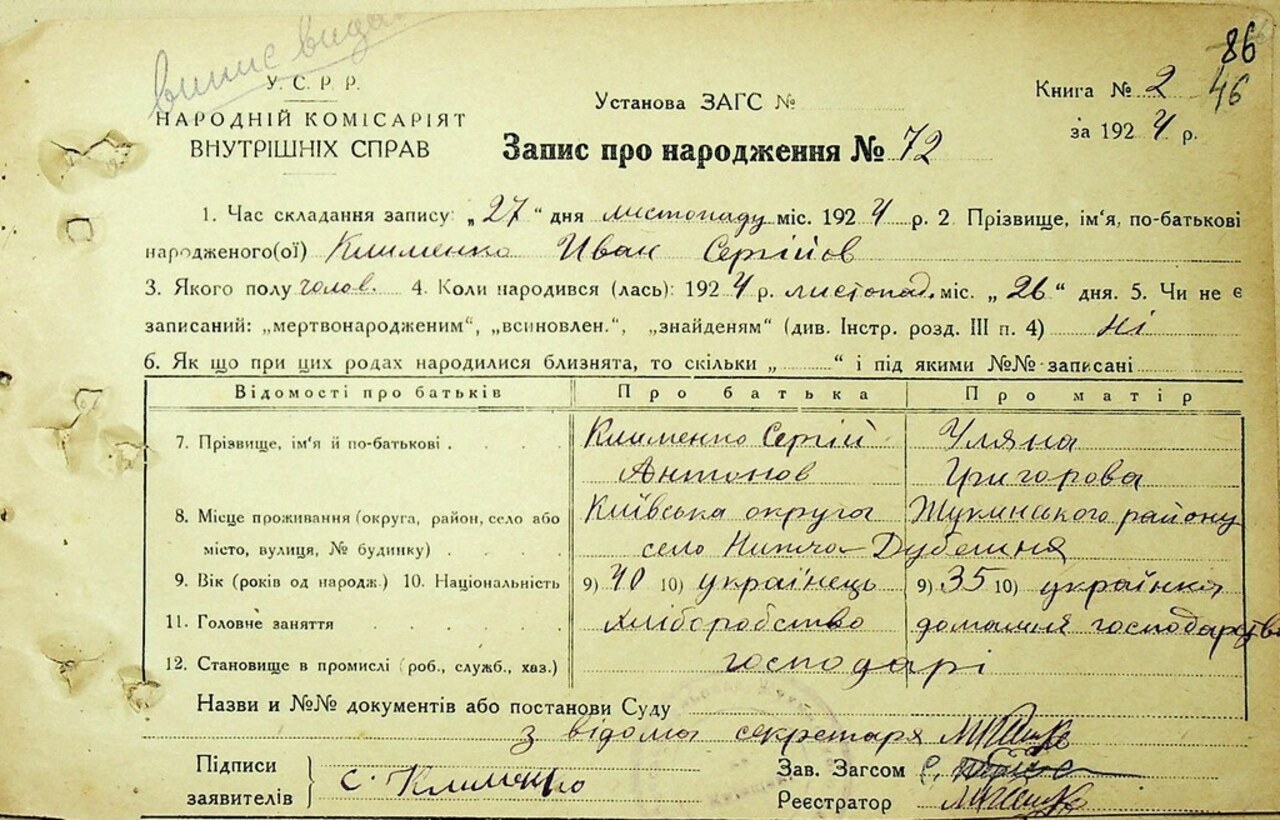 випис видан
86
46
У. С. Р. Р.
НАРОДНІЙ КОМІСАРІЯТ
ВНУТРІШНІХ СПРАВ
Установа ЗАГС №
Книга № 2
за 1924 р.
Запис про народження № 72
1. Час складання запису: „27“ дня листопаду міс. 1924 р. 2. Прізвище, ім'я, по-батькові
народженого(ої) Клименко Иван Сергійов
3. Якого полу чолов. 4. Коли народився (лась): 1924 р. листопад. міс. „26“ дня. 5. Чи не є
записаний: „мертвонародженим“, „всиновлен.“, „знайденям“ (див. Інстр. розд. III п. 4) ні
6. Як що при цих родах народилися близнята, то скільки „ “ і під якими №№ записані
Відомості про батьків Про батька Про матір
7. Прізвище, ім'я й по-батькові Клименко Сергій Уляна
Антонов Григорова
8. Місце проживання (округа, район, село або Київська округа Жукинського району
місто, вулиця, № будинку) село Нижча-Дубешня
9. Вік (років од народж.) 10. Національність 9) 40 10) українець 9) 35 10) українка
11. Головне заняття хліборобство домашнє господарство
12. Становище в промислі (роб., служб., хаз.) господарі
Назви и №№ документів або постанови Суду
з відома секретаря
Підписи
заявителів
С Клименко
Зав. Загсом
Реєстратор